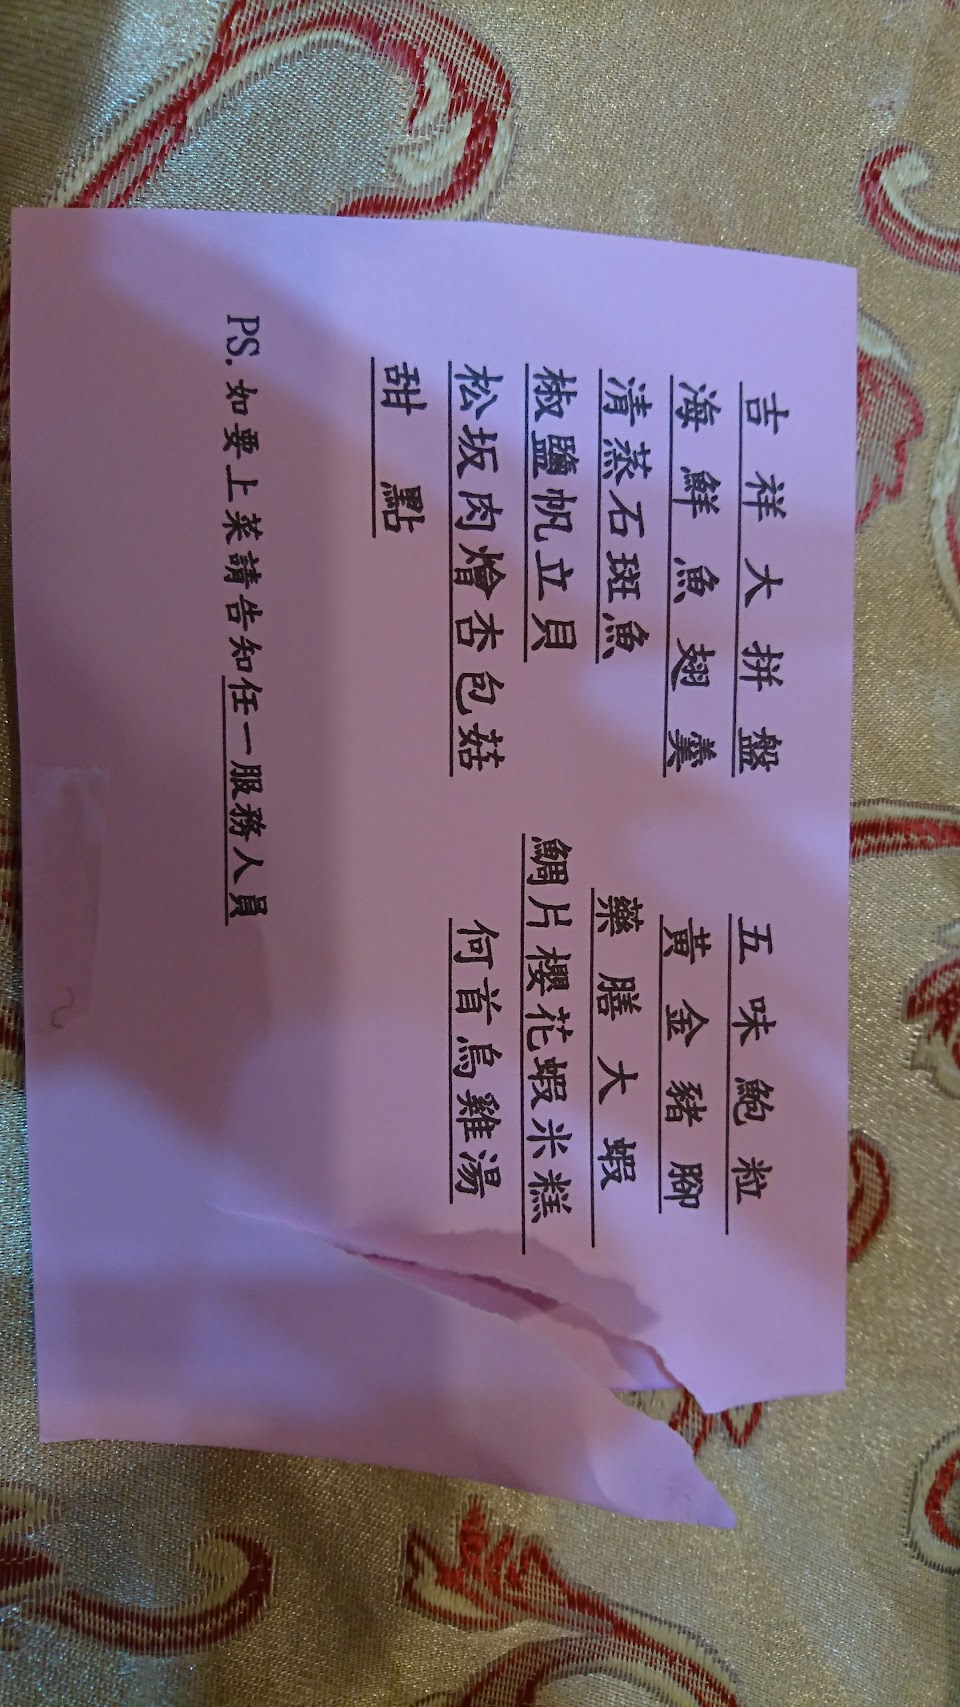 吉祥大拼盤 五味鮑粒
海鮮魚翅羹 黃金豬腳
清蒸石斑魚 藥膳大蝦
椒鹽帆立貝 鯛片櫻花蝦米糕
松坂肉燴杏包菇 何首烏雞湯
甜點
PS.如要上菜請告知任一服務人員